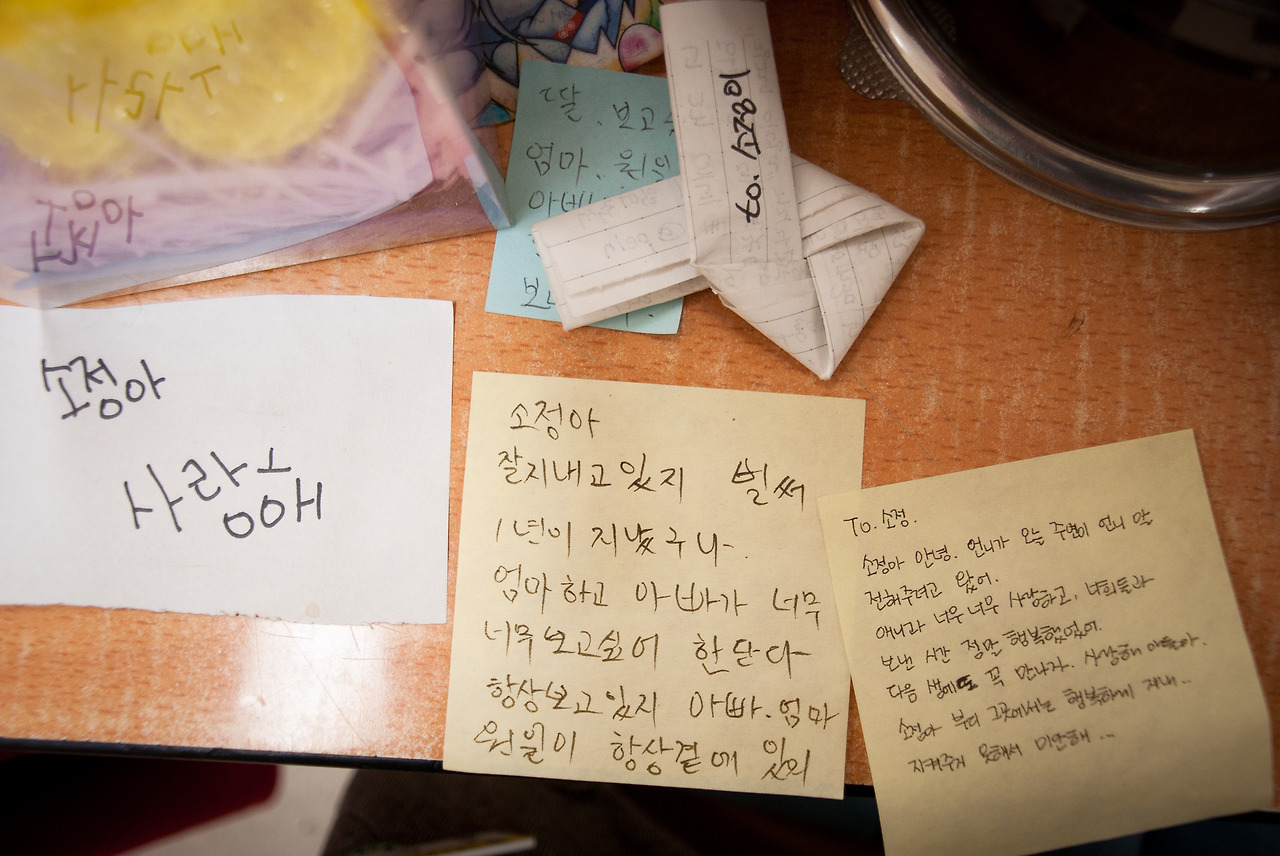 사랑해
소정아
딸. 보고
엄마.
to. 소정이
소정아
사랑해
소정아
잘지내고 있지 벌써
1년이 지났구나.
엄마하고 아빠가 너무
너무보고싶어 한단다
항상보고있지 아빠.엄마
원일이 항상곁에 있의
To. 소정.
소정아 안녕. 언니가 오늘 주변이 언니 말
전해주려고 왔어.
애니라 너무너무 사랑하고, 너희들과
보낸 시간 정말 행복했었어.
다음 생에도 꼭 만나자. 사랑해
소정아 부디 그곳에서는 행복하게 지내..
지켜주지 못해서 미안해...